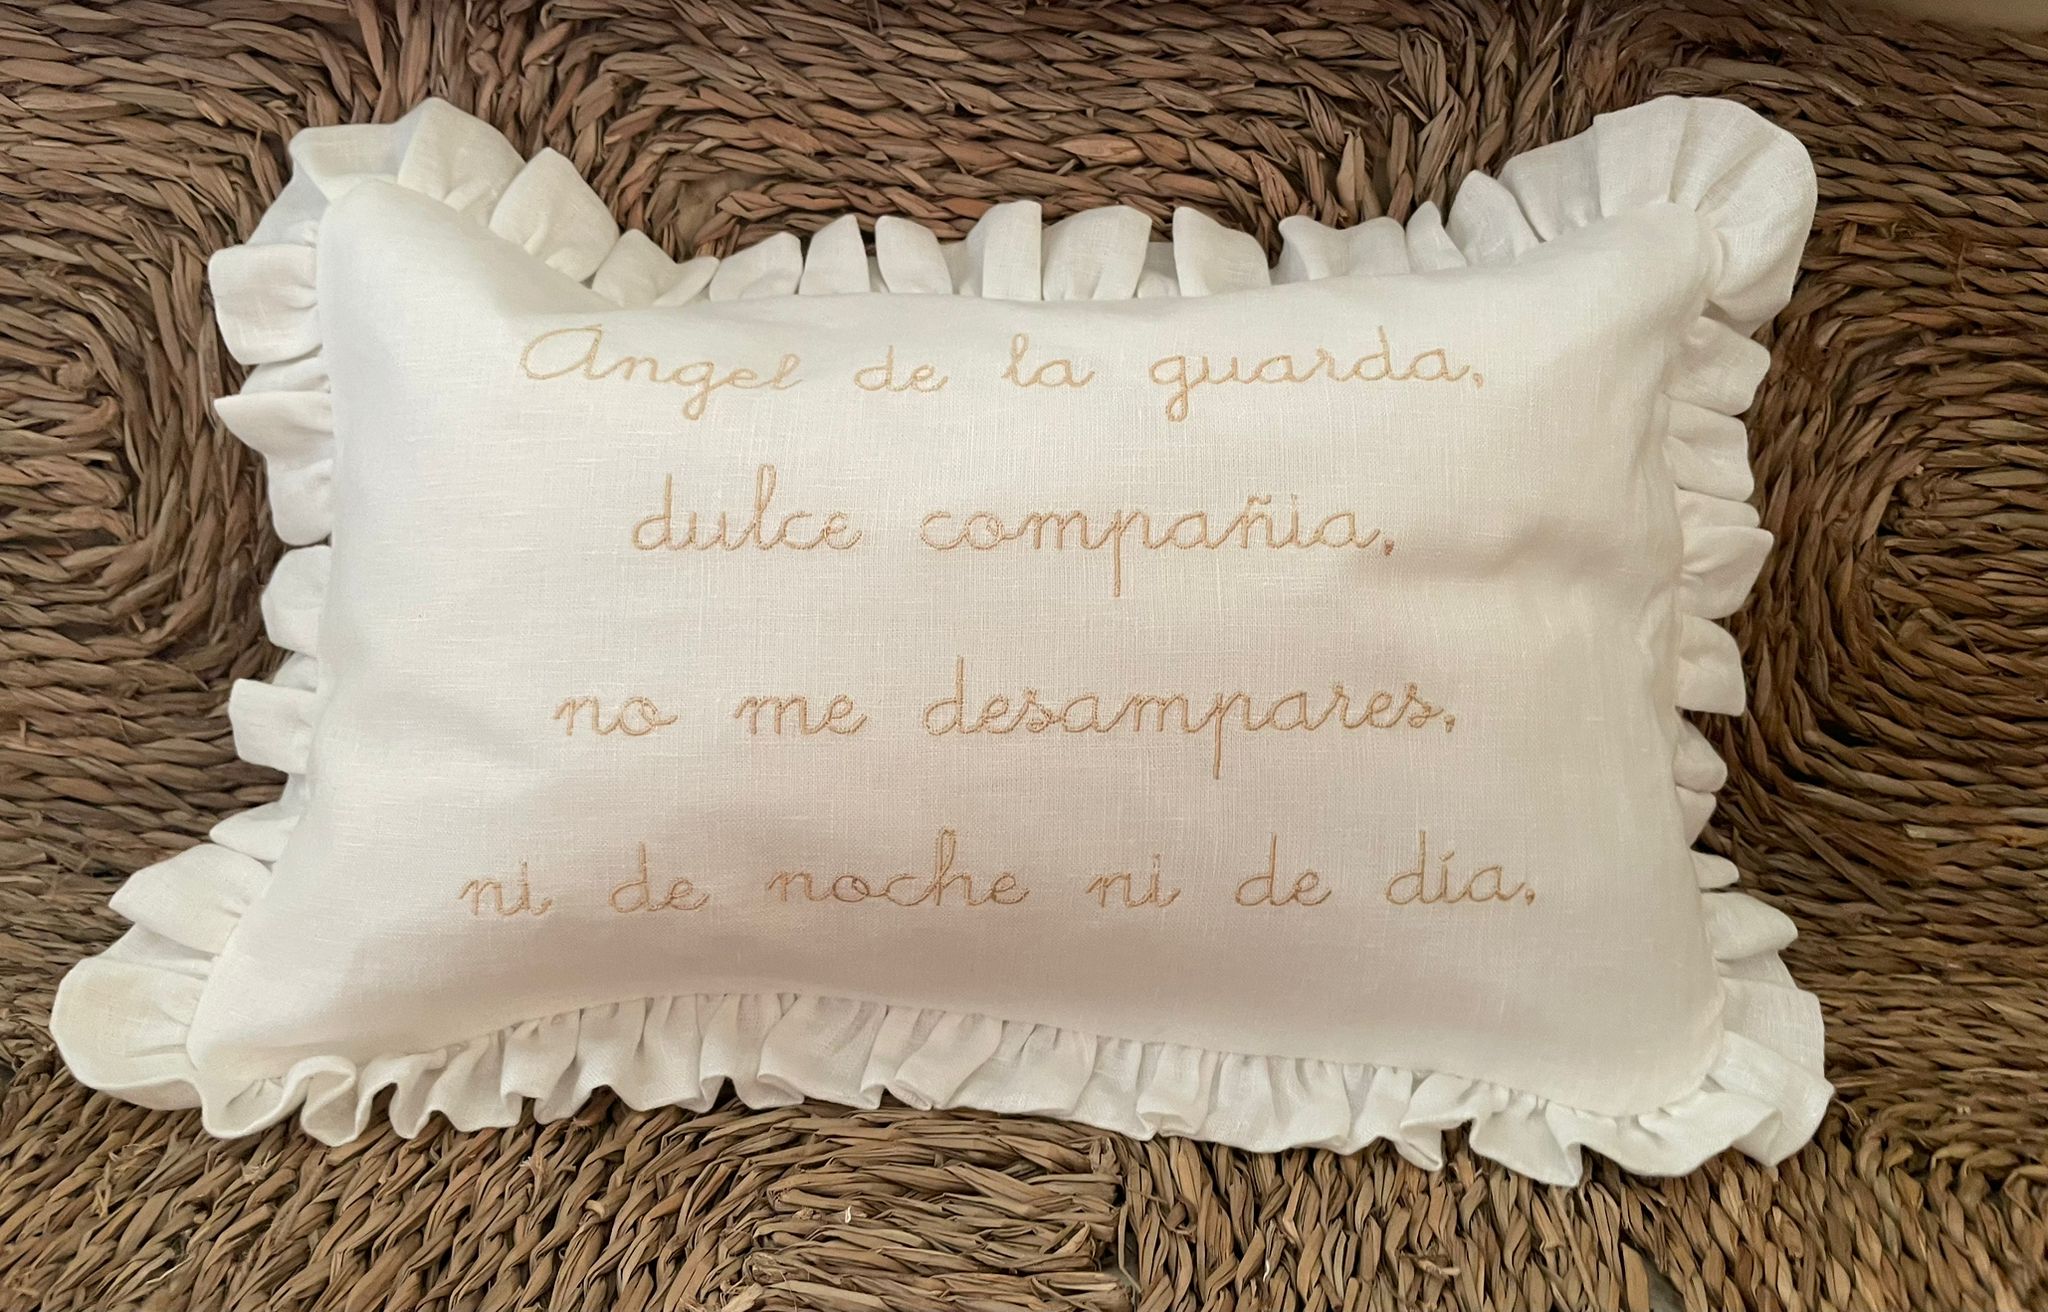 Ángel de la guarda,
dulce compañia,
no me desampares,
ni de noche ni de día,